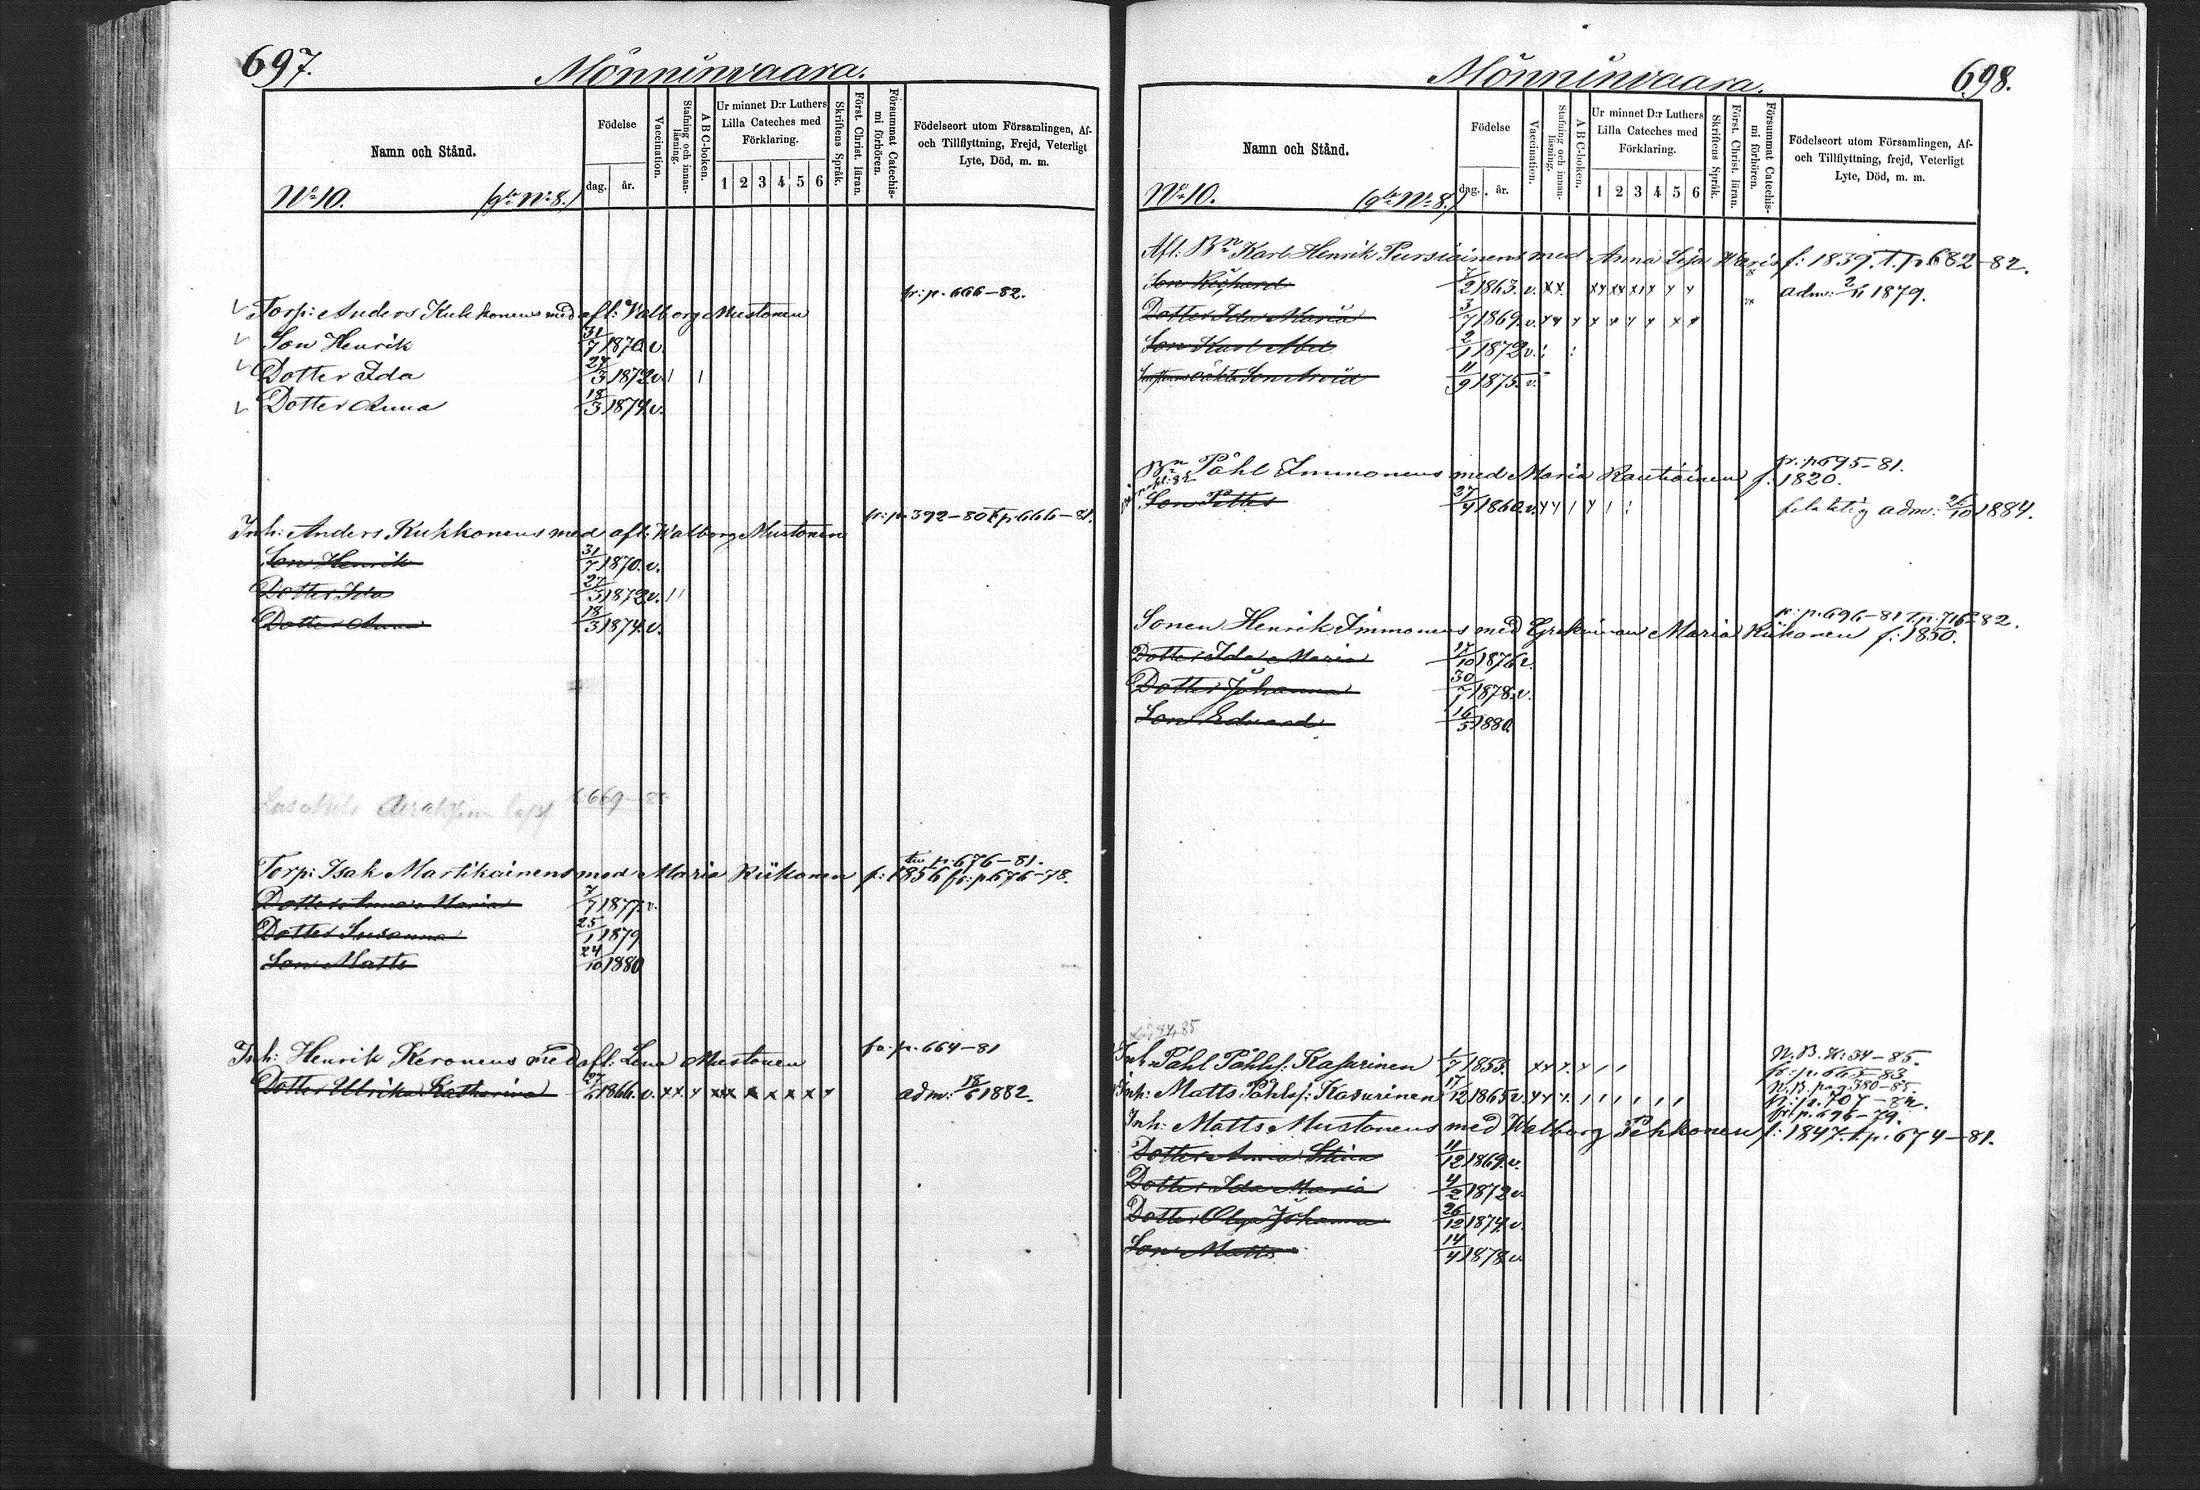 697.
Mönninvaara.
Namn och Stånd.
Födelse
dag. år.
Vaccination.
Stafning och innan-läsning.
A B C-boken.
Ur minnet D:r Luthers Lilla Cateches med Förklaring.
1 2 3 4 5 6
Skriftens Språk.
Först. Christ. läran.
Försummat Catechis-mi förhören.
Födelseort utom Församlingen, Af- och Tillflyttning, Frejd, Veterligt Lyte, Död, m. m.
No 10. No 8.)
fr: p. 666-82.
Torp: Anders Kukkonens med afl: Valborg Mustonen
Son Henrik 31/7 1870 v.
Dotter Ida 27/3 1872 v. 1 1
Dotter Anna 18/3 1874 v.
fr: p. 392-80 t. p. 666-81.
Inh: Anders Kukkonens med afl: Walborg Mustonen
Son Henrik 31/7 1870 v.
Dotter Ida 27/3 1872 v. 1 1
Dotter Anna 18/3 1874 v.
669
p. 676-81.
Torp: Isak Martikainens med Maria Riikonen f: 1856 fr: p 676-78.
Dotter Anna Maria 7/7 1877 v.
Dotter Susanna 25/1 1879
Son Matts 24/10 1880
fr. p. 664-81
Inh: Henrik Keronens med afl: Lena Mustonen
Dotter Ulrika Katharina 1866 v. x x x x x x x x x x adm: 18/6 1882.
698.
Mönninvaara.
Namn och Stånd.
Födelse
dag. år.
Vaccination.
Stafning och innan-läsning.
A B C-boken.
Ur minnet D:r Luthers Lilla Cateches med Förklaring.
1 2 3 4 5 6
Skriftens Språk.
Först. Christ. läran.
Försummat Catechis-mi förhören.
Födelseort utom Församlingen, Af- och Tillflyttning, frejd, Veterligt Lyte, Död, m. m.
No 10. No 8.)
Afl: Bn Karl Henrik Pursiainens med Anna Lisa f: 1839. t. p 682-82.
Son Richard 7/2 1863. v. x x. x x x x x x x x adm: 2/11 1879.
Dotter Ida Maria 3/7 1869. v. x x x x x x x x x
Son Karl Abel 2/1 1872 v.
oäkta Son Arvid 11/9 1875. v.
fr. p 695-81.
Bn Påhl Immonens med Maria Rautiainen f: 1820.
Son Petter 27/9 1860 v. adm: 26/10 1884.
fr: p. 696-81 t. p. 716-82.
Sonen Henrik Immonens med Maria Riikonen f: 1850.
Dotter Ida Maria 17/10 1876 v.
Dotter Johanna 30/7 1878. v.
Son Edvard 16/5 1880.
N. B. p: 34-85.
Inh: Påhl Påhlsf: Kasurinen 1/7 1855. fr: p. 665-83
N. B. pag 380-85.
Inh: Matts Påhlsf: Kasurinen 17/12 1865 v. fr: p. 707-82.
fr: p. 696-79.
Inh: Matts Mustonens med Walborg Pekkonen f: 1847 t. p. 674-81.
Dotter Anna Stina 11/12 1869. v.
Dotter Ida Maria 4/2 1872 v.
Dotter Olga Johanna 26/12 1874 v.
Son Matts 14/4 1878 v.